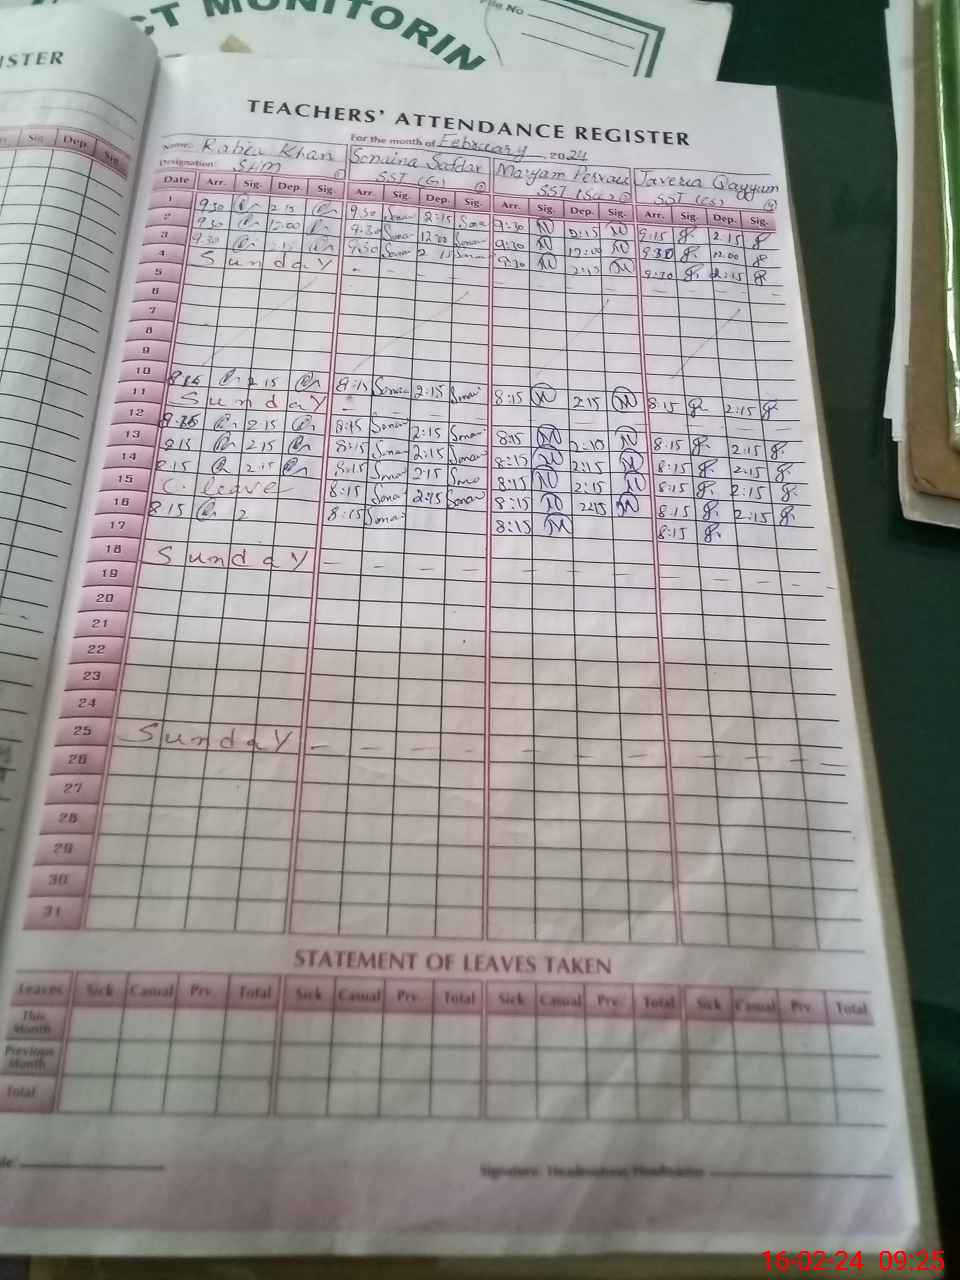 CT MONITORIN
File No
ISTER
TEACHERS' ATTENDANCE REGISTER
For the month of February 2024
Name: Rabia Khan Sonaina Safdar Maryam Pervaiz Javeria Qayyum
Designation: SHM SST (G) SST (Sc) SST (CS)
Date Arr. Sig. Dep. Sig. Arr. Sig. Dep. Sig. Arr. Sig. Dep. Sig. Arr. Sig. Dep. Sig.
Sig. Dep. Sig.
1 9:30 2:15 9:30 Sonai 2:15 Sonai 9:30 M 2:15 M 9:15 2:15
2 9:30 12:00 9:30 Sonai 12:00 Sonai 9:30 M 12:00 M 9:30 12:00
3 9:30 2:15 9:30 Sonai 2:15 Sonai 9:30 M 2:15 M 9:30 2:15
4 Sunday - - - -
5
6
7
8
9
10 8:15 2:15 8:15 Sonai 2:15 Sonai 8:15 M 2:15 M 8:15 2:15
11 Sunday -
12 8:15 2:15 8:15 Sonai 2:15 Sonai 8:15 M 2:10 M 8:15 2:15
13 8:15 2:15 8:15 Sonai 2:15 Sonai 8:15 M 2:15 M 8:15 2:15
14 8:15 2:15 8:15 Sonai 2:15 Sonai 8:15 M 2:15 M 8:15 2:15
15 C. leave 8:15 Sonai 2:15 Sonai 8:15 M 2:15 M 8:15 2:15
16 8:15 2 8:15 Sonai 8:15 M 8:15
17
18 Sunday - - - - - - - - - - - -
19
20
21
22
23
24
25 Sunday - - - - - - - - - - - -
26
27
28
29
30
31
STATEMENT OF LEAVES TAKEN
Leaves Sick Casual Prv. Total Sick Casual Prv. Total Sick Casual Prv. Total Sick Casual Prv. Total
This Month
Previous Month
Total
Signature: Headmistress/Headmaster
16-02-24 09:25